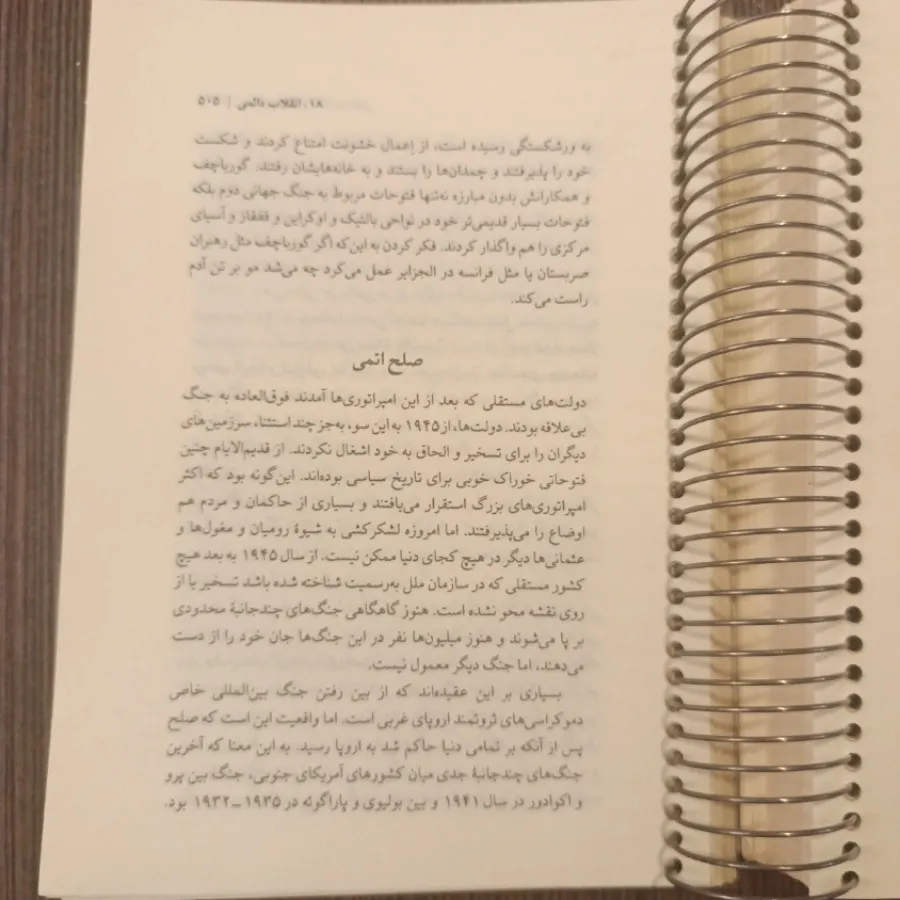 ۱۸. انقلاب دائمی | ۵۰۵
به ورشکستگی رسیده است، از اِعمال خشونت امتناع کردند و شکست
خود را پذیرفتند و چمدان‌ها را بستند و به خانه‌هایشان رفتند. گورباچف
و همکارانش بدون مبارزه نه‌تنها فتوحات مربوط به جنگ جهانی دوم بلکه
فتوحات بسیار قدیمی‌تر خود در نواحی بالتیک و اوکراین و قفقاز و آسیای
مرکزی را هم واگذار کردند. فکر کردن به این‌که اگر گورباچف مثل رهبران
صربستان یا مثل فرانسه در الجزایر عمل می‌کرد چه می‌شد مو بر تن آدم
راست می‌کند.
صلح اتمی
دولت‌های مستقلی که بعد از این امپراتوری‌ها آمدند فوق‌العاده به جنگ
بی‌علاقه بودند. دولت‌ها، از ۱۹۴۵ به این سو، به‌جز چند استثناء، سرزمین‌های
دیگران را برای تسخیر و الحاق به خود اشغال نکردند. از قدیم‌الایام چنین
فتوحاتی خوراک خوبی برای تاریخ سیاسی بوده‌اند. این‌گونه بود که اکثر
امپراتوری‌های بزرگ استقرار می‌یافتند و بسیاری از حاکمان و مردم هم
اوضاع را می‌پذیرفتند. اما امروزه لشکرکشی به شیوۀ رومیان و مغول‌ها و
عثمانی‌ها دیگر در هیچ کجای دنیا ممکن نیست. از سال ۱۹۴۵ به بعد هیچ
کشور مستقلی که در سازمان ملل به‌رسمیت شناخته شده باشد تسخیر یا از
روی نقشه محو نشده است. هنوز گاهگاهی جنگ‌های چندجانبۀ محدودی
بر پا می‌شوند و هنوز میلیون‌ها نفر در این جنگ‌ها جان خود را از دست
می‌دهند، اما جنگ دیگر معمول نیست.
بسیاری بر این عقیده‌اند که از بین رفتن جنگ بین‌المللی خاص
دموکراسی‌های ثروتمند اروپای غربی است. اما واقعیت این است که صلح
پس از آنکه بر تمامی دنیا حاکم شد به اروپا رسید. به این معنا که آخرین
جنگ‌های چندجانبۀ جدی میان کشورهای آمریکای جنوبی، جنگ بین پرو
و اکوادور در سال ۱۹۴۱ و بین بولیوی و پاراگوئه در ۱۹۳۵ـ۱۹۳۲ بود.